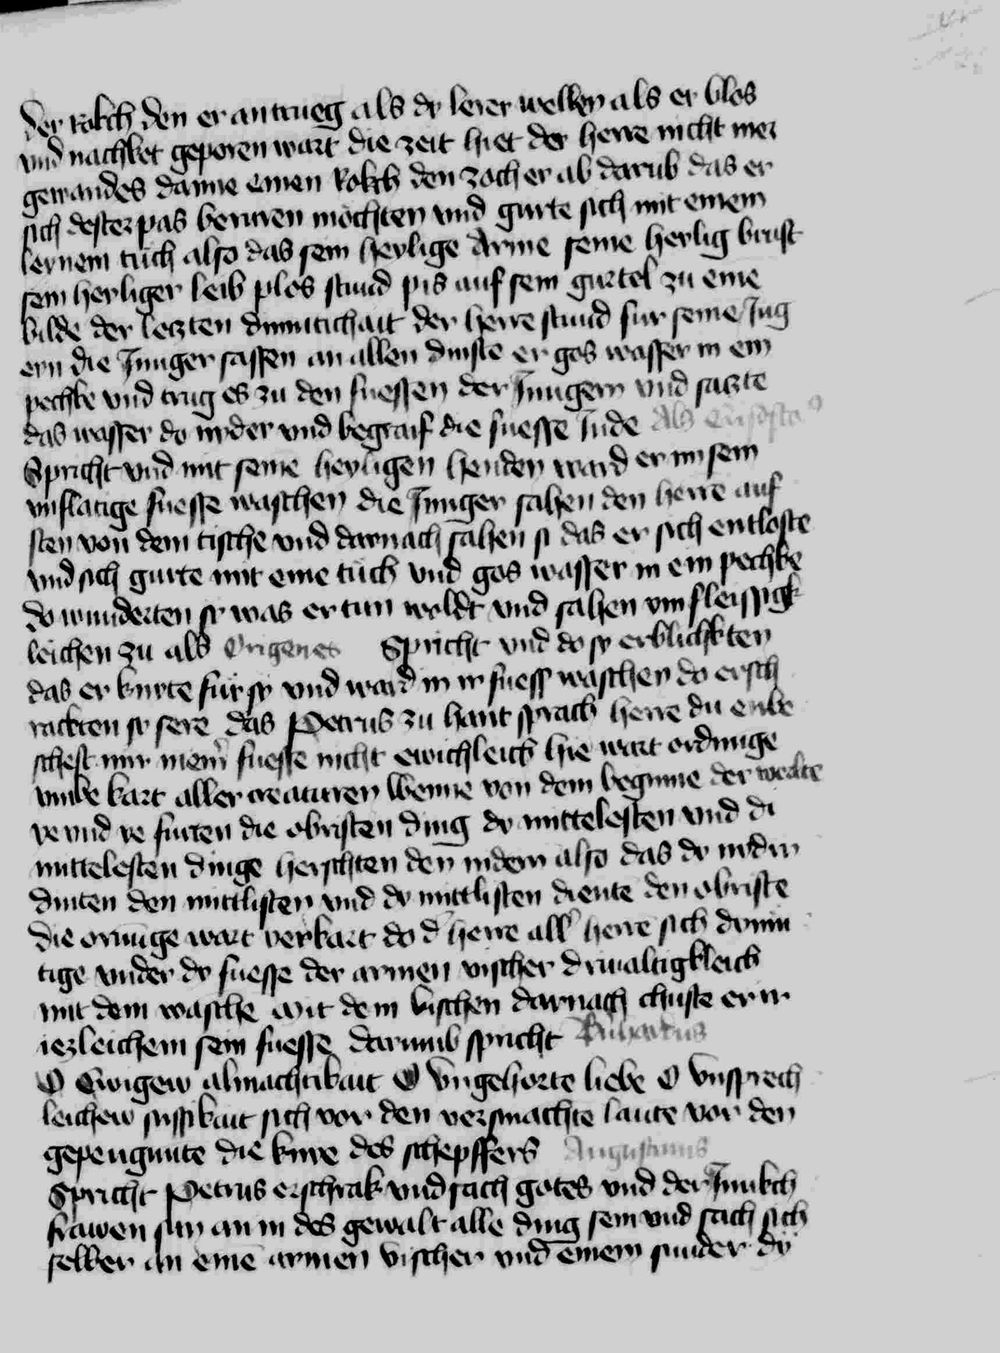 der rokch den er antrueg als dy lerer wellen als er blos
vnd nachket geporen wart die zeit hiet der herre nicht mer
gewandes danne einen Rokch den zoch er ab darub das er
sich dester pas beruren mochten vnd gurte sich mit einem
leynem tuch also das sein heylige Arme seine heylig brust
sein heyliger leib plos stund pis auf sein gurtel zu eine
bilde der leczten diemutichait der herre stund fur seine Jug
ern die Junger sassen an allen dinste er gos wasser in ein
pechke vnd trug es zu den fuessen der Jungern vnd saczte
das wasser do nyder vnd begraif die fuesse Jude Als Crisosto9
Spricht vnd mit seine heyligen henden ward er im sein
vnflatige fuesse waschen die Junger sahen den herre auf
sten von dem tische vnd darnach sahen si das er sich entloste
vnd sich gurte mit eine tuch vnd gos wasser in ein pechke
do wunderten sy was er tun woldt vnd sahen vmfleissigk
leichen zu als Origenes Spricht vnd do sy erblichkten
das er knyte fur sy vnd ward in ir fuess waschen do ersch
rackten sy sere das Petrus zu hant sprach herre du enbe
schest mir mein fuesse nicht ewichleich hie wart ordnunge
vmbe kart aller creaturen Wenne von dem beginne der werlte
ye vnd ye furten die obristen ding dy mittelesten vnd di
mittelesten dinge herschten den nidern also das dy nidrn
dinten den mittlisten vnd dy mittlisten diente den obriste
die ornunge wart verkart do d herre all herre sich dyemu
tige vnder dy fuesse der armen vischer drivaltigkleich
mit dem wasche mit dem wischen darnach chuste er ir
iezleichem sein fuesse darumb spricht
O Ewigew almachtikait O vngehorte liebe O vnsprech
leichew sussikait sich vor den versmachte laute vor den
die knye des schepffers Augustinus
Spricht Petrus erschrak vnd sach gotes vnd der Junkch
frawen sun an in des gewalt alle ding sein vnd sach sich
selber an eine armen vischer vnd einem sunder dy